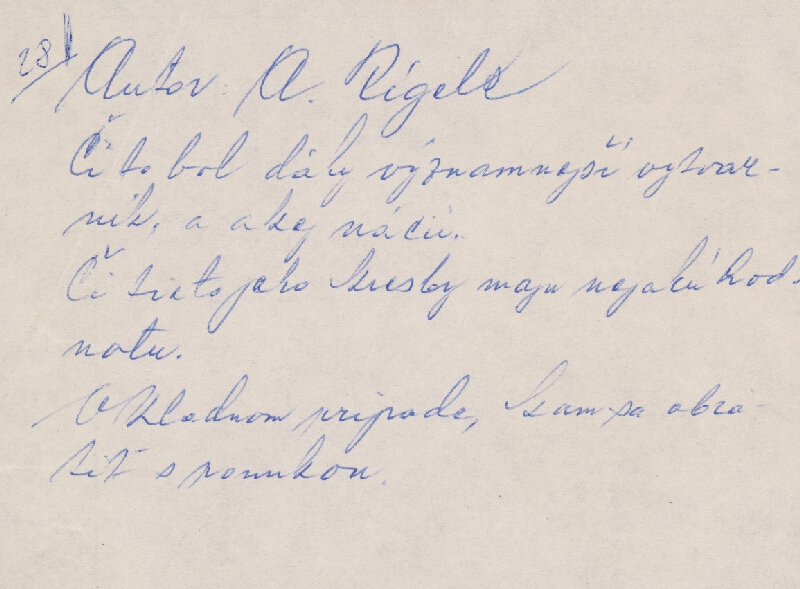 28
Autor: A. Rigele
Či to bol dály významnejší vytvar-
nik. a akej nácii.
Či tieto jeho kresby maju nejakú hod-
notu.
V kladnom pripade, kam sa obrá-
tiť s ponukou.